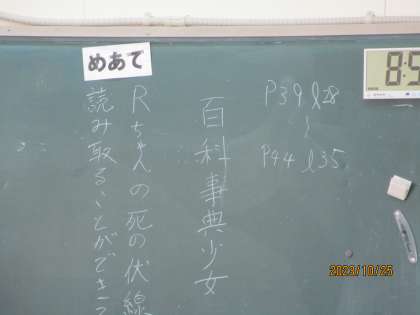 P39 l28
〜
P44 l35
百科事典少女
めあて
Rちゃんの死の伏線
読み取ることができて
8:5
2023/10/25